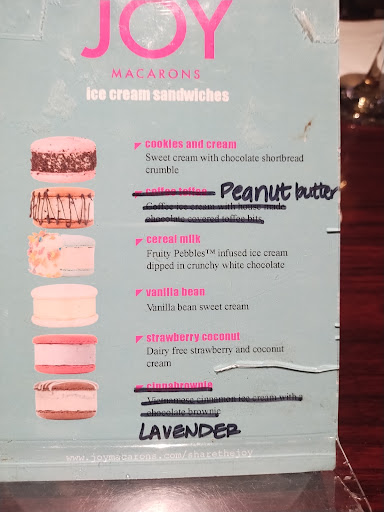 JOY
MACARONS
ice cream sandwiches
cookies and cream
Sweet cream with chocolate shortbread
crumble
coffee toffee Peanut butter
Coffee ice cream with house made
chocolate covered toffee bits
cereal milk
Fruity Pebbles™ infused ice cream
dipped in crunchy white chocolate
vanilla bean
Vanilla bean sweet cream
strawberry coconut
Dairy free strawberry and coconut
cream
cinnabrownie
Vietnamese cinnamon ice cream with a
chocolate brownie
LAVENDER
www.joymacarons.com/sharethejoy